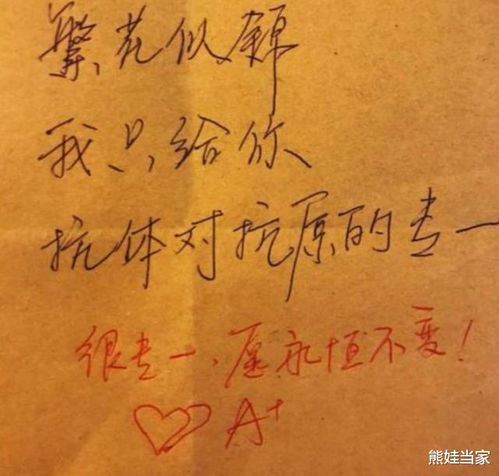 繁花似锦
我只给你
抗体对抗原的专一
很专一、愿永恒不变！
A+
熊娃当家